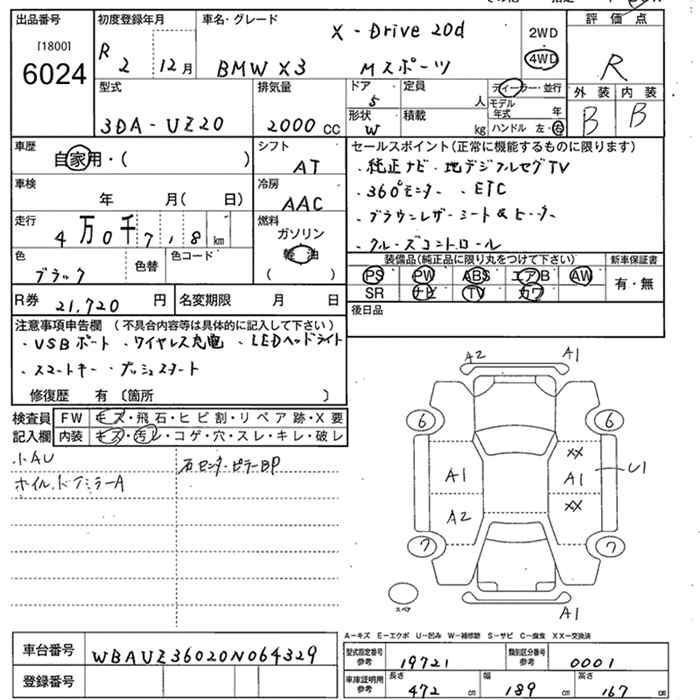 出品番号
[1800]
6024
初度登録年月
R 2 12月
車名・グレード
X-Drive 20d
BMW X3 Mスポーツ
2WD
4WD
評価点
R
外装 内装
B B
型式
3DA-UZ20
排気量
2000 CC
ドア
5
定員
人
形状
W
積載
kg
ディーラー・並行
モデル年式 年
ハンドル 左・右
車歴
自家用・( )
シフト
AT
車検
年 月( )
冷房
AAC
走行
4万0千718km
燃料
ガソリン
軽油
( )
色
ブラック
色替
色コード
R券 21,720 円
名変期限 月 日
セールスポイント(正常に機能するものに限ります)
・純正ナビ・地デジフルセグTV
・360°モニター ・ETC
・ブラウンレザーシート&ヒーター
・クルーズコントロール
装備品(純正品に限り丸をつけて下さい)
PS PW ABS エアB AW
SR ナビ TV カワ
新車保証書
有・無
後日品
注意事項申告欄 (不具合内容等は具体的に記入して下さい)
・USBポート ・ワイヤレス充電 ・LEDヘッドライト
・スマートキー・プッシュスタート
修復歴 有〔箇所 〕
検査員記入欄
FW キズ・飛石・ヒビ割・リペア跡・X要
内装 キズ・汚レ・コゲ・穴・スレ・キレ・破レ
小AU
ホイル、ドアミラーA
右センターピラーBP
A2 A1
6 6
XX
A1 A1 U1
A2 XX
7 7
スペア
A1
A－キズ E－エクボ U－凹み W－補修跡 S－サビ C－腐食 XX－交換済
車台番号 WBAUZ36020N064329
登録番号
型式指定番号 参考 19721
類別区分番号 参考 0001
車庫証明用 参考
長さ 472 cm
幅 189 cm
高さ 167 cm